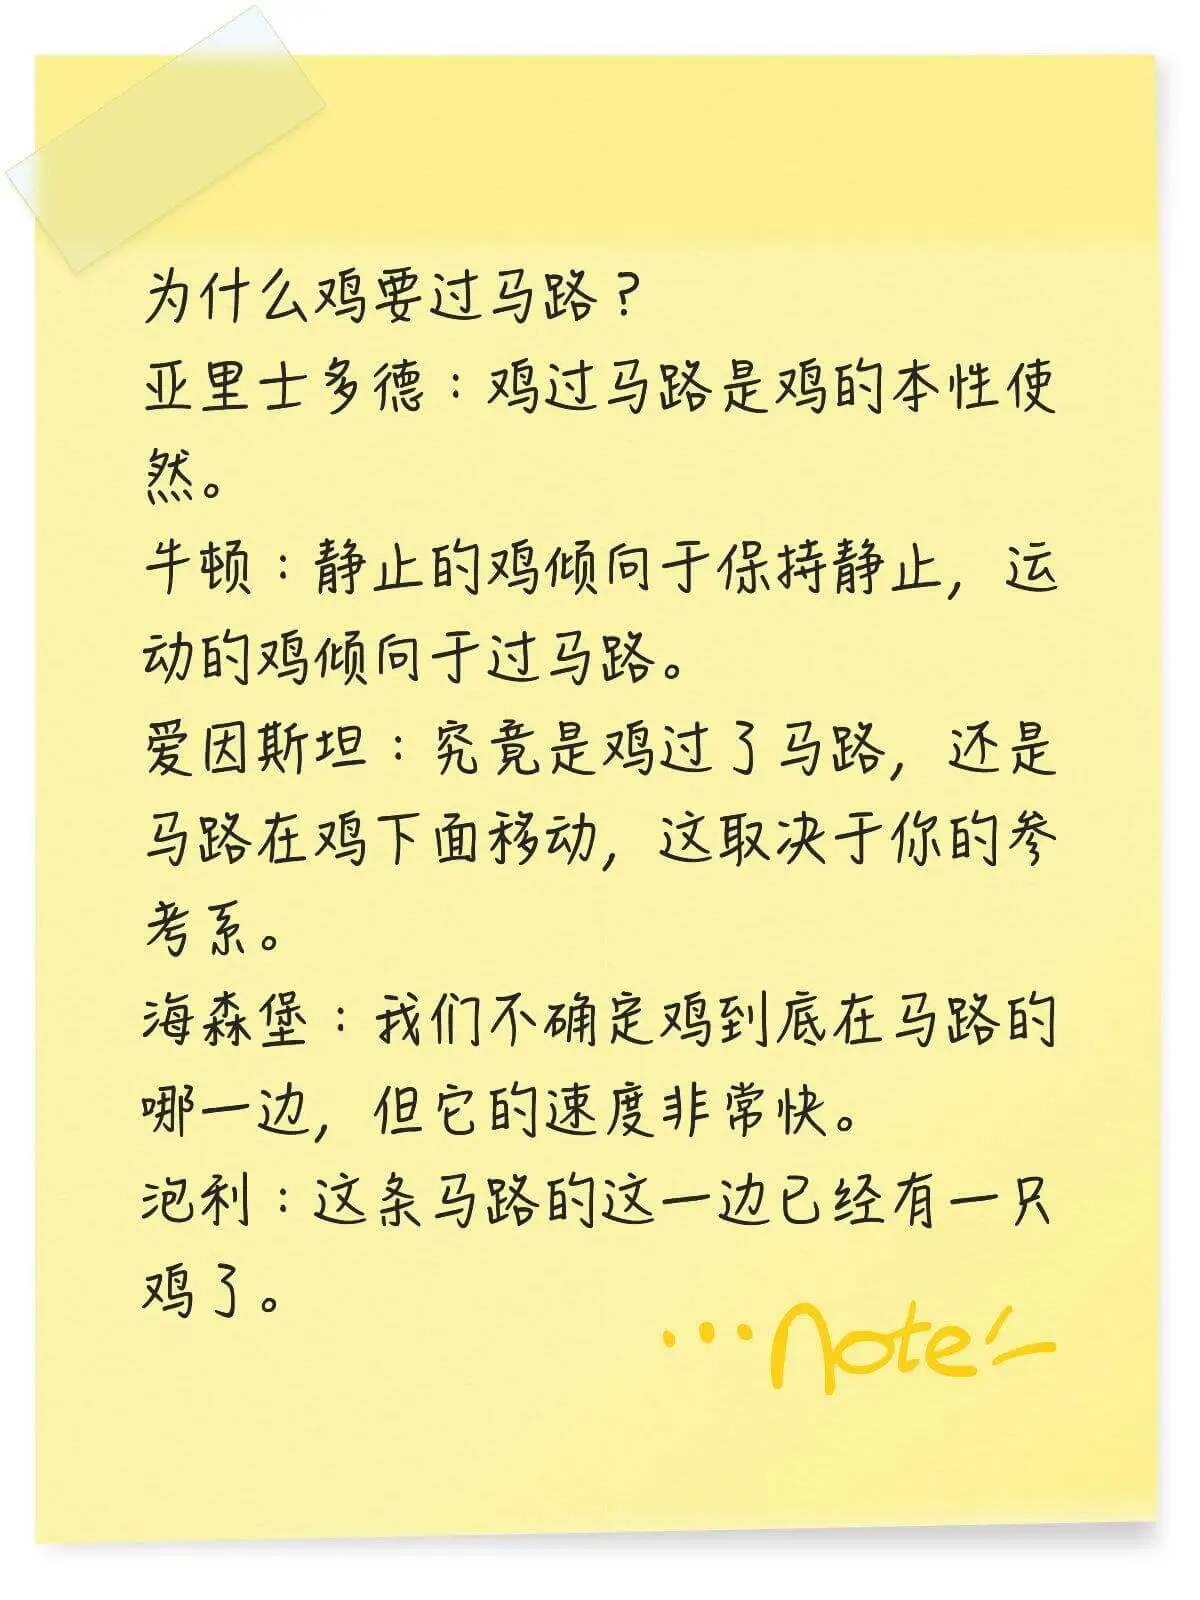 为什么鸡要过马路？
亚里士多德：鸡过马路是鸡的本性使
然。
牛顿：静止的鸡倾向于保持静止，运
动的鸡倾向于过马路。
爱因斯坦：究竟是鸡过了马路，还是
马路在鸡下面移动，这取决于你的参
考系。
海森堡：我们不确定鸡到底在马路的
哪一边，但它的速度非常快。
泡利：这条马路的这一边已经有一只
鸡了。
...note